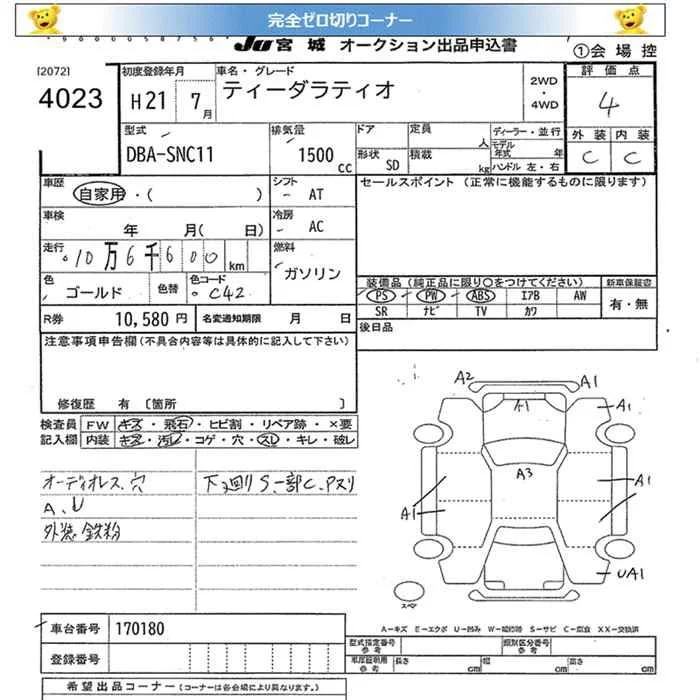 完全ゼロ切りコーナー
JU宮城 オークション出品申込書
①会場控
[2072]
4023
初度登録年月
H21 7月
車名・グレード
ティーダラティオ
2WD・4WD
評価点
4
外装 内装
C C
型式
DBA-SNC11
排気量
1500cc
ドア
定員 人
ディーラー・並行
モデル年式 年
形状 SD
積載 kg
ハンドル 左・右
車歴
自家用・( )
シフト
AT
セールスポイント (正常に機能するものに限ります)
車検
年 月( 日)
冷房
AC
走行
10万6千600km
燃料
ガソリン
色
ゴールド
色替
色コード
C42
装備品(純正品に限り○をつけてください)
新車保証書
PS PW ABS エアB AW
有・無
SR ナビ TV カワ
R券 10,580円
名変通知期限 月 日
後日品
注意事項申告欄(不具合内容等は具体的に記入して下さい)
修復歴 有 〔箇所 〕
検査員記入欄
FW キズ・飛石・ヒビ割・リペア跡・×要
内装 キズ・汚れ・コゲ・穴・スレ・キレ・破レ
オーディオレス、穴
下廻りS、一部C、Pヌリ
A、U
外装 鉄粉
A2
A1
A1
A1
A3
A1
A1
UA1
スペア
A-キズ E-エクボ U-凹み W-補修跡 S-サビ C-腐食 XX-交換済
車台番号 170180
型式指定番号 参考
類別区分番号 参考
登録番号
車庫証明用 参考
長さ cm
幅 cm
高さ cm
希望出品コーナー(コーナーは各会場により異なります。)